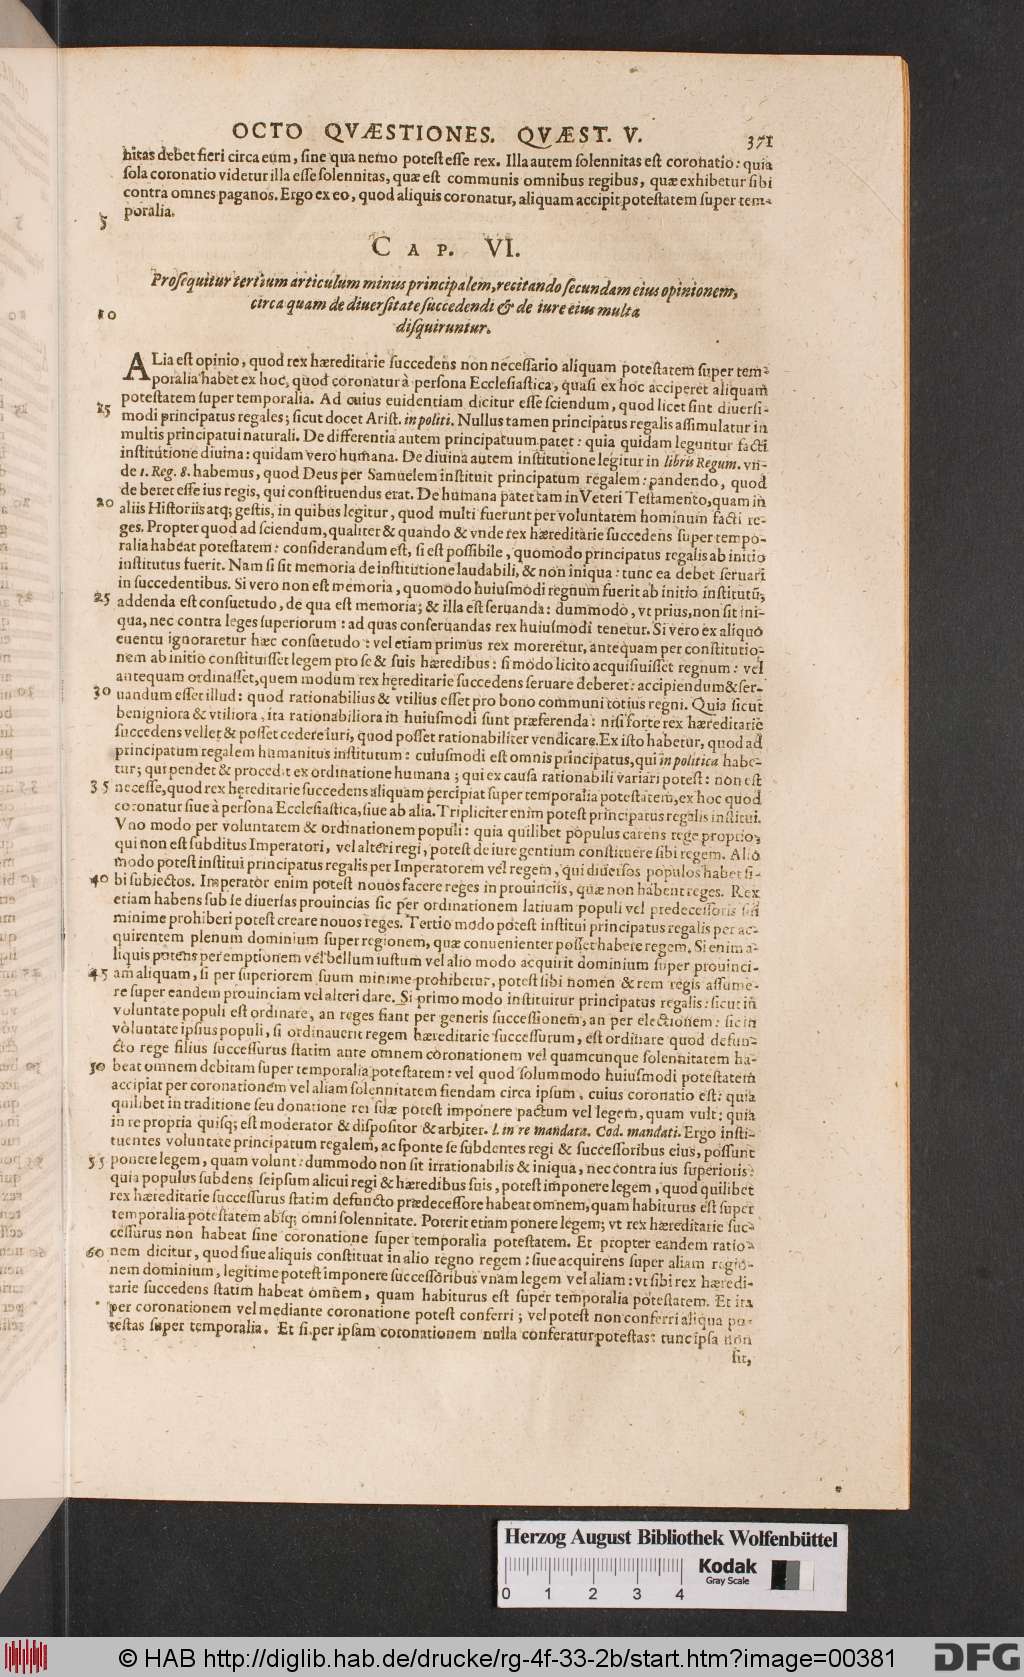 OCTO QVÆSTIONES. QVÆST. V. 371
nitas debet fieri circa eum, sine qua nemo potest esse rex. Illa autem solennitas est coronatio: quia
sola coronatio videtur illa esse solennitas, quæ est communis omnibus regibus, quæ exhibetur sibi
contra omnes paganos. Ergo ex eo, quod aliquis coronatur, aliquam accipit potestatem super tem-
5 poralia.
CAP. VI.
Prosequitur tertium articulum minus principalem, recitando secundam eius opinionem,
10 circa quam de diuersitate succedendi & de iure eius multa
disquiruntur.
ALia est opinio, quod rex hæreditarie succedens non necessario aliquam potestatem super tem-
poralia habet ex hoc, quod coronatur à persona Ecclesiastica, quasi ex hoc acciperet aliquam
potestatem super temporalia. Ad cuius euidentiam dicitur esse sciendum, quod licet sint diuersi-
25 modi principatus regales; sicut docet Arist. in politi. Nullus tamen principatus regalis assimulatur in
multis principatui naturali. De differentia autem principatuum patet: quia quidam leguntur facti
institutione diuina: quidam vero humana. De diuina autem institutione legitur in libris Regum. vn-
de 1. Reg. 8. habemus, quod Deus per Samuelem instituit principatum regalem: pandendo, quod
de beret esse ius regis, qui constituendus erat. De humana patet tam in Veteri Testamento, quam in
20 aliis Historiis atq; gestis, in quibus legitur, quod multi fuerunt per voluntatem hominum facti re-
ges. Propter quod ad sciendum, qualiter & quando & vnde rex hæreditarie succedens super tempo-
ralia habeat potestatem: considerandum est, si est possibile, quomodo principatus regalis ab initio
institutus fuerit. Nam si sit memoria de institutione laudabili, & non iniqua: tunc ea debet seruari
in succedentibus. Si vero non est memoria, quomodo huiusmodi regnum fuerit ab initio institutũ,
25 addenda est consuetudo, de qua est memoria; & illa est seruanda: dummodo, vt prius, non sit ini-
qua, nec contra leges superiorum: ad quas conseruandas rex huiusmodi tenetur. Si vero ex aliquo
euentu ignoraretur hæc consuetudo: vel etiam primus rex moreretur, antequam per constitutio-
nem ab initio constituisset legem pro se & suis hæredibus: si modo licito acquisiuisset regnum: vel
antequam ordinasset, quem modum rex hęreditarie succedens seruare deberet: accipiendum & ser-
30 uandum esset illud: quod rationabilius & vtilius esset pro bono communi totius regni. Quia sicut
benigniora & vtiliora, ita rationabiliora in huiusmodi sunt præferenda: nisi forte rex hæreditarie
succedens vellet & posset cedere iuri, quod posset rationabiliter vendicare. Ex isto habetur, quod ad
principatum regalem humanitus institutum: cuiusmodi est omnis principatus, qui in politica habe-
tur; qui pendet & procedit ex ordinatione humana; qui ex causa rationabili variari potest: non est
35 necesse, quod rex hęreditarie succedens aliquam percipiat super temporalia potestatem, ex hoc quod
coronatur siue à persona Ecclesiastica, siue ab alia. Tripliciter enim potest principatus regalis institui.
Vno modo per voluntatem & ordinationem populi: quia quilibet populus carens rege proprio,
qui non est subditus Imperatori, vel alteri regi, potest de iure gentium constituere sibi regem. Alio
modo potest institui principatus regalis per Imperatorem vel regem, qui diuersos populos habet si-
40 bi subiectos. Imperator enim potest nouos facere reges in prouinciis, quæ non habent reges. Rex
etiam habens sub se diuersas prouincias sic per ordinationem latiuam populi vel predecessoris sui
minime prohiberi potest creare nouos reges. Tertio modo potest institui principatus regalis per ac-
quirentem plenum dominium super regionem, quæ conuenienter posset habere regem. Si enim a-
liquis potens per emptionem vel bellum iustum vel alio modo acquirit dominium super prouinci-
45 am aliquam, si per superiorem suum minime prohibetur, potest sibi nomen & rem regis assume-
re super eandem prouinciam vel alteri dare. Si primo modo instituitur principatus regalis: sicut in
voluntate populi est ordinare, an reges fiant per generis successionem, an per electionem: sic in
voluntate ipsius populi, si ordinauerit regem hæreditarie successurum, est ordinare quod defun-
cto rege filius successurus statim ante omnem coronationem vel quamcunque solennitatem ha-
50 beat omnem debitam super temporalia potestatem: vel quod solummodo huiusmodi potestatem
accipiat per coronationem vel aliam solennitatem fiendam circa ipsum, cuius coronatio est: quia
quilibet in traditione seu donatione rei suæ potest imponere pactum vel legem, quam vult: quia
in re propria quisq; est moderator & dispositor & arbiter. l. in re mandata. Cod. mandati. Ergo insti-
tuentes voluntate principatum regalem, ac sponte se subdentes regi & successoribus eius, possunt
55 ponere legem, quam volunt: dummodo non sit irrationabilis & iniqua, nec contra ius superioris:
quia populus subdens seipsum alicui regi & hæredibus suis, potest imponere legem, quod quilibet
rex hæreditarie successurus statim defuncto prædecessore habeat omnem, quam habiturus est super
temporalia potestatem absq; omni solennitate. Poterit etiam ponere legem; vt rex hæreditarie suc-
cessurus non habeat sine coronatione super temporalia potestatem. Et propter eandem ratio-
60 nem dicitur, quod siue aliquis constituat in alio regno regem: siue acquirens super aliam regio-
nem dominium, legitime potest imponere successoribus vnam legem vel aliam: vt sibi rex hæredi-
tarie succedens statim habeat omnem, quam habiturus est super temporalia potestatem. Et ita
per coronationem vel mediante coronatione potest conferri; vel potest non conferri aliqua po-
testas super temporalia. Et si per ipsam coronationem nulla conferatur potestas: tunc ipsa non
sit,
Herzog August Bibliothek Wolfenbüttel
0 1 2 3 4
Kodak
Gray Scale
© HAB http://diglib.hab.de/drucke/rg-4f-33-2b/start.htm?image=00381
DFG